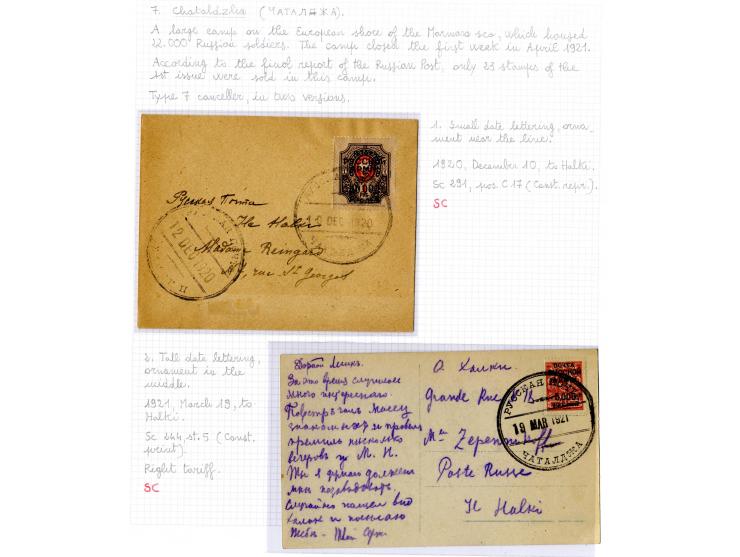 7. Chataldzha (ЧАТАЛДЖА).
A large camp on the European shore of the Marmara sea, which housed
22.000 Russian soldiers. The camp closed the first week in April 1921.
According to the final report of the Russian Post, only 23 stamps of the
1st issue were sold in this camp.
Type 7 canceller, in two versions.
1. Small date lettering, orna_
ment near the line.
1920, December 10, to Halki.
Sc 291, pos. C 17 (Const. repr.).
SC
10 DEC 1920
Русская Почта
Ile Halki
Madame Reingard
rue St Georges
12 DEC 1920
2. Tall date lettering,
ornament in the
middle.
1921, March 19, to
Halki.
Sc 244, st. 5 (Const.
print).
Right tariff.
SC
Дорогой
За это время случилось
много интересного.
Повстречал массу
знакомых и провел
вечеров у М. Н.
Ты я думаю должен
мне позавидовать
Случайно нашел вид
Халок и посылаю
Тебе - Твой
О. Халки
Grande Rue
Mr
Poste Russe
Il Halki
ПОЧТА
РУССКАЯ
19 MAR 1921
ЧАТАЛДЖА